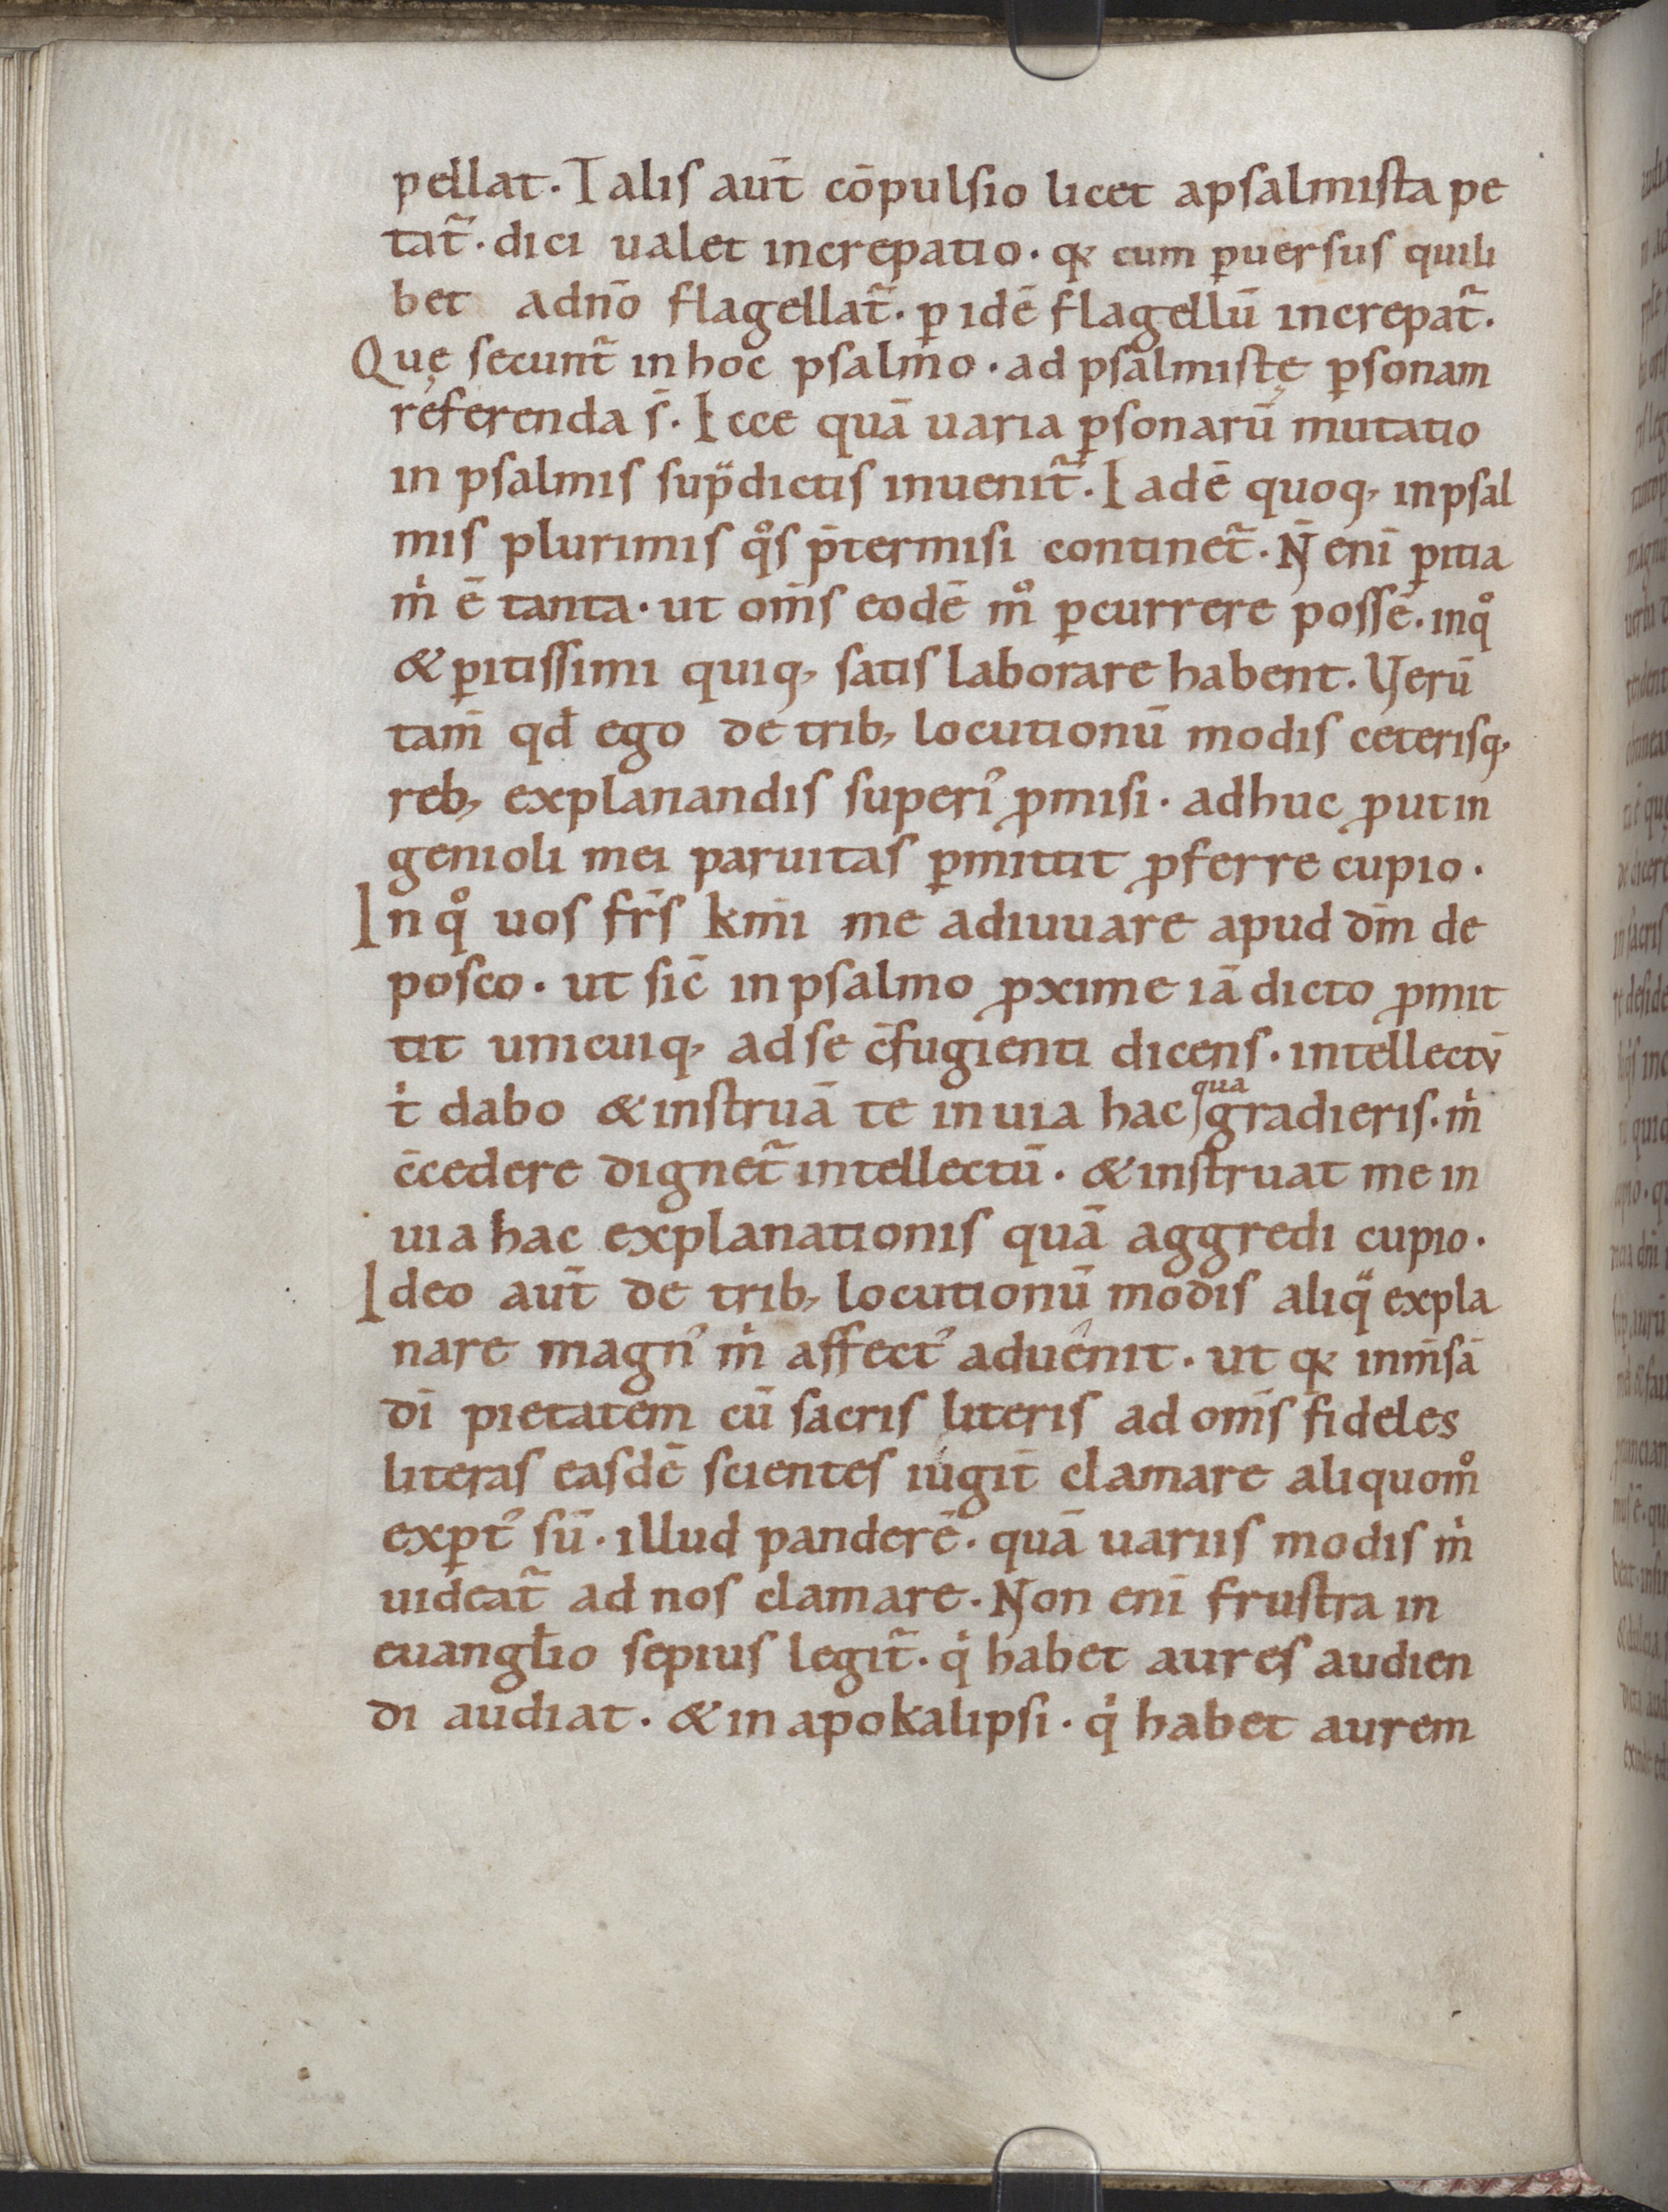 pellat. Talis aut̄ cōpulsio licet apsalmista pe
tat᷑. dici ualet increpatio. qꝛ cum ꝑuersus quili
bet adn̄o flagellat᷑. ꝑ idē flagellū increpat᷑.
Quę secunt᷑ inhoc psalmo. ad psalmistę ꝑsonam
referenda s̄. Ecce quā uaria ꝑsonarū mutatio
in psalmis sup̈dictis inuenit᷑. Eadē quoq; inpsal
mis plurimis qͦs p̄termisi continet᷑. N̄ enī ꝑitia
mͥ ē tanta. ut om̄s eodē mͦ ꝑcurrere possē. inqͦ
& ꝑitissimi quiq; satis laborare habent. Verū
tam̄ qđ ego de trib; locutionū modis ceterisq;
reb; explanandis superiꝰ ꝓmisi. adhuc ꝓut in
genioli mei paruitas ꝑmittit ꝓferre cupio.
In qͦ uos fr̄s km̄i me adiuuare apud dm̄ de
posco. ut sic̄ in psalmo ꝓxime iā dicto ꝓmit
tit unicuiq; ad se c̄fugienti dicens. intellectū
tͥ dabo & instruā te in uia hac qua gradieris. mͥ
c̄cedere dignet᷑ intellectū. & instruat me in
uia hac explanationis quā aggredi cupio.
Ideo aut̄ de trib; locutionū modis aliq̈ expla
nare magnꝰ mͥ affectꝰ aduenit. ut qꝛ inm̄sā
dī pietatem cū sacris literis ad om̄s fideles
literas easdē scientes iugit̄ clamare aliquomͦ
exꝑtꝰ sū. illud panderē. quā uariis modis mͥ
uideat᷑ ad nos clamare. Non enī frustra in
euangł̄io sepius legit᷑. qͥ habet aures audien
di audiat. & in apokalipsi. qͥ habet aurem